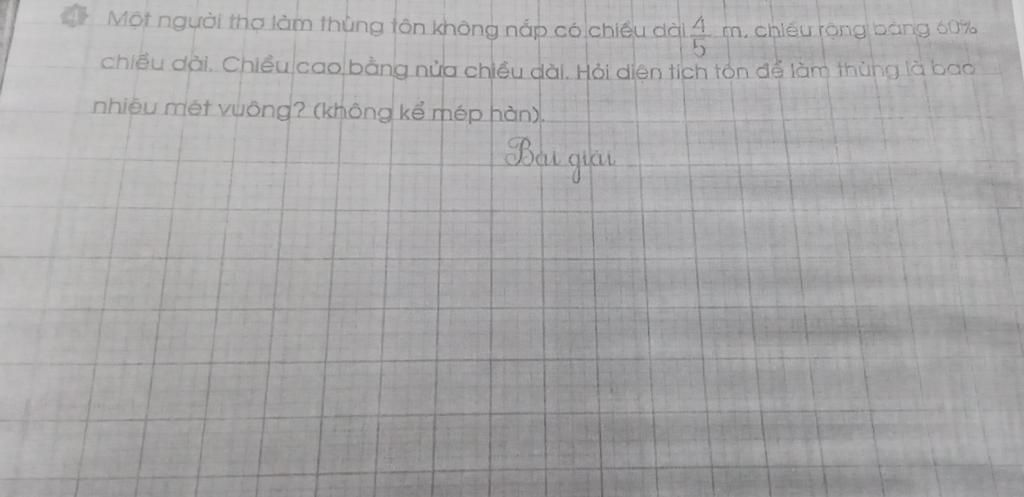 4 Một người thợ làm thùng tôn không nắp có chiều dài 4/5 m, chiều rộng bằng 60%
chiều dài. Chiều cao bằng nửa chiều dài. Hỏi diện tích tôn để làm thùng là bao
nhiêu mét vuông? (không kể mép hàn).
Bài giải